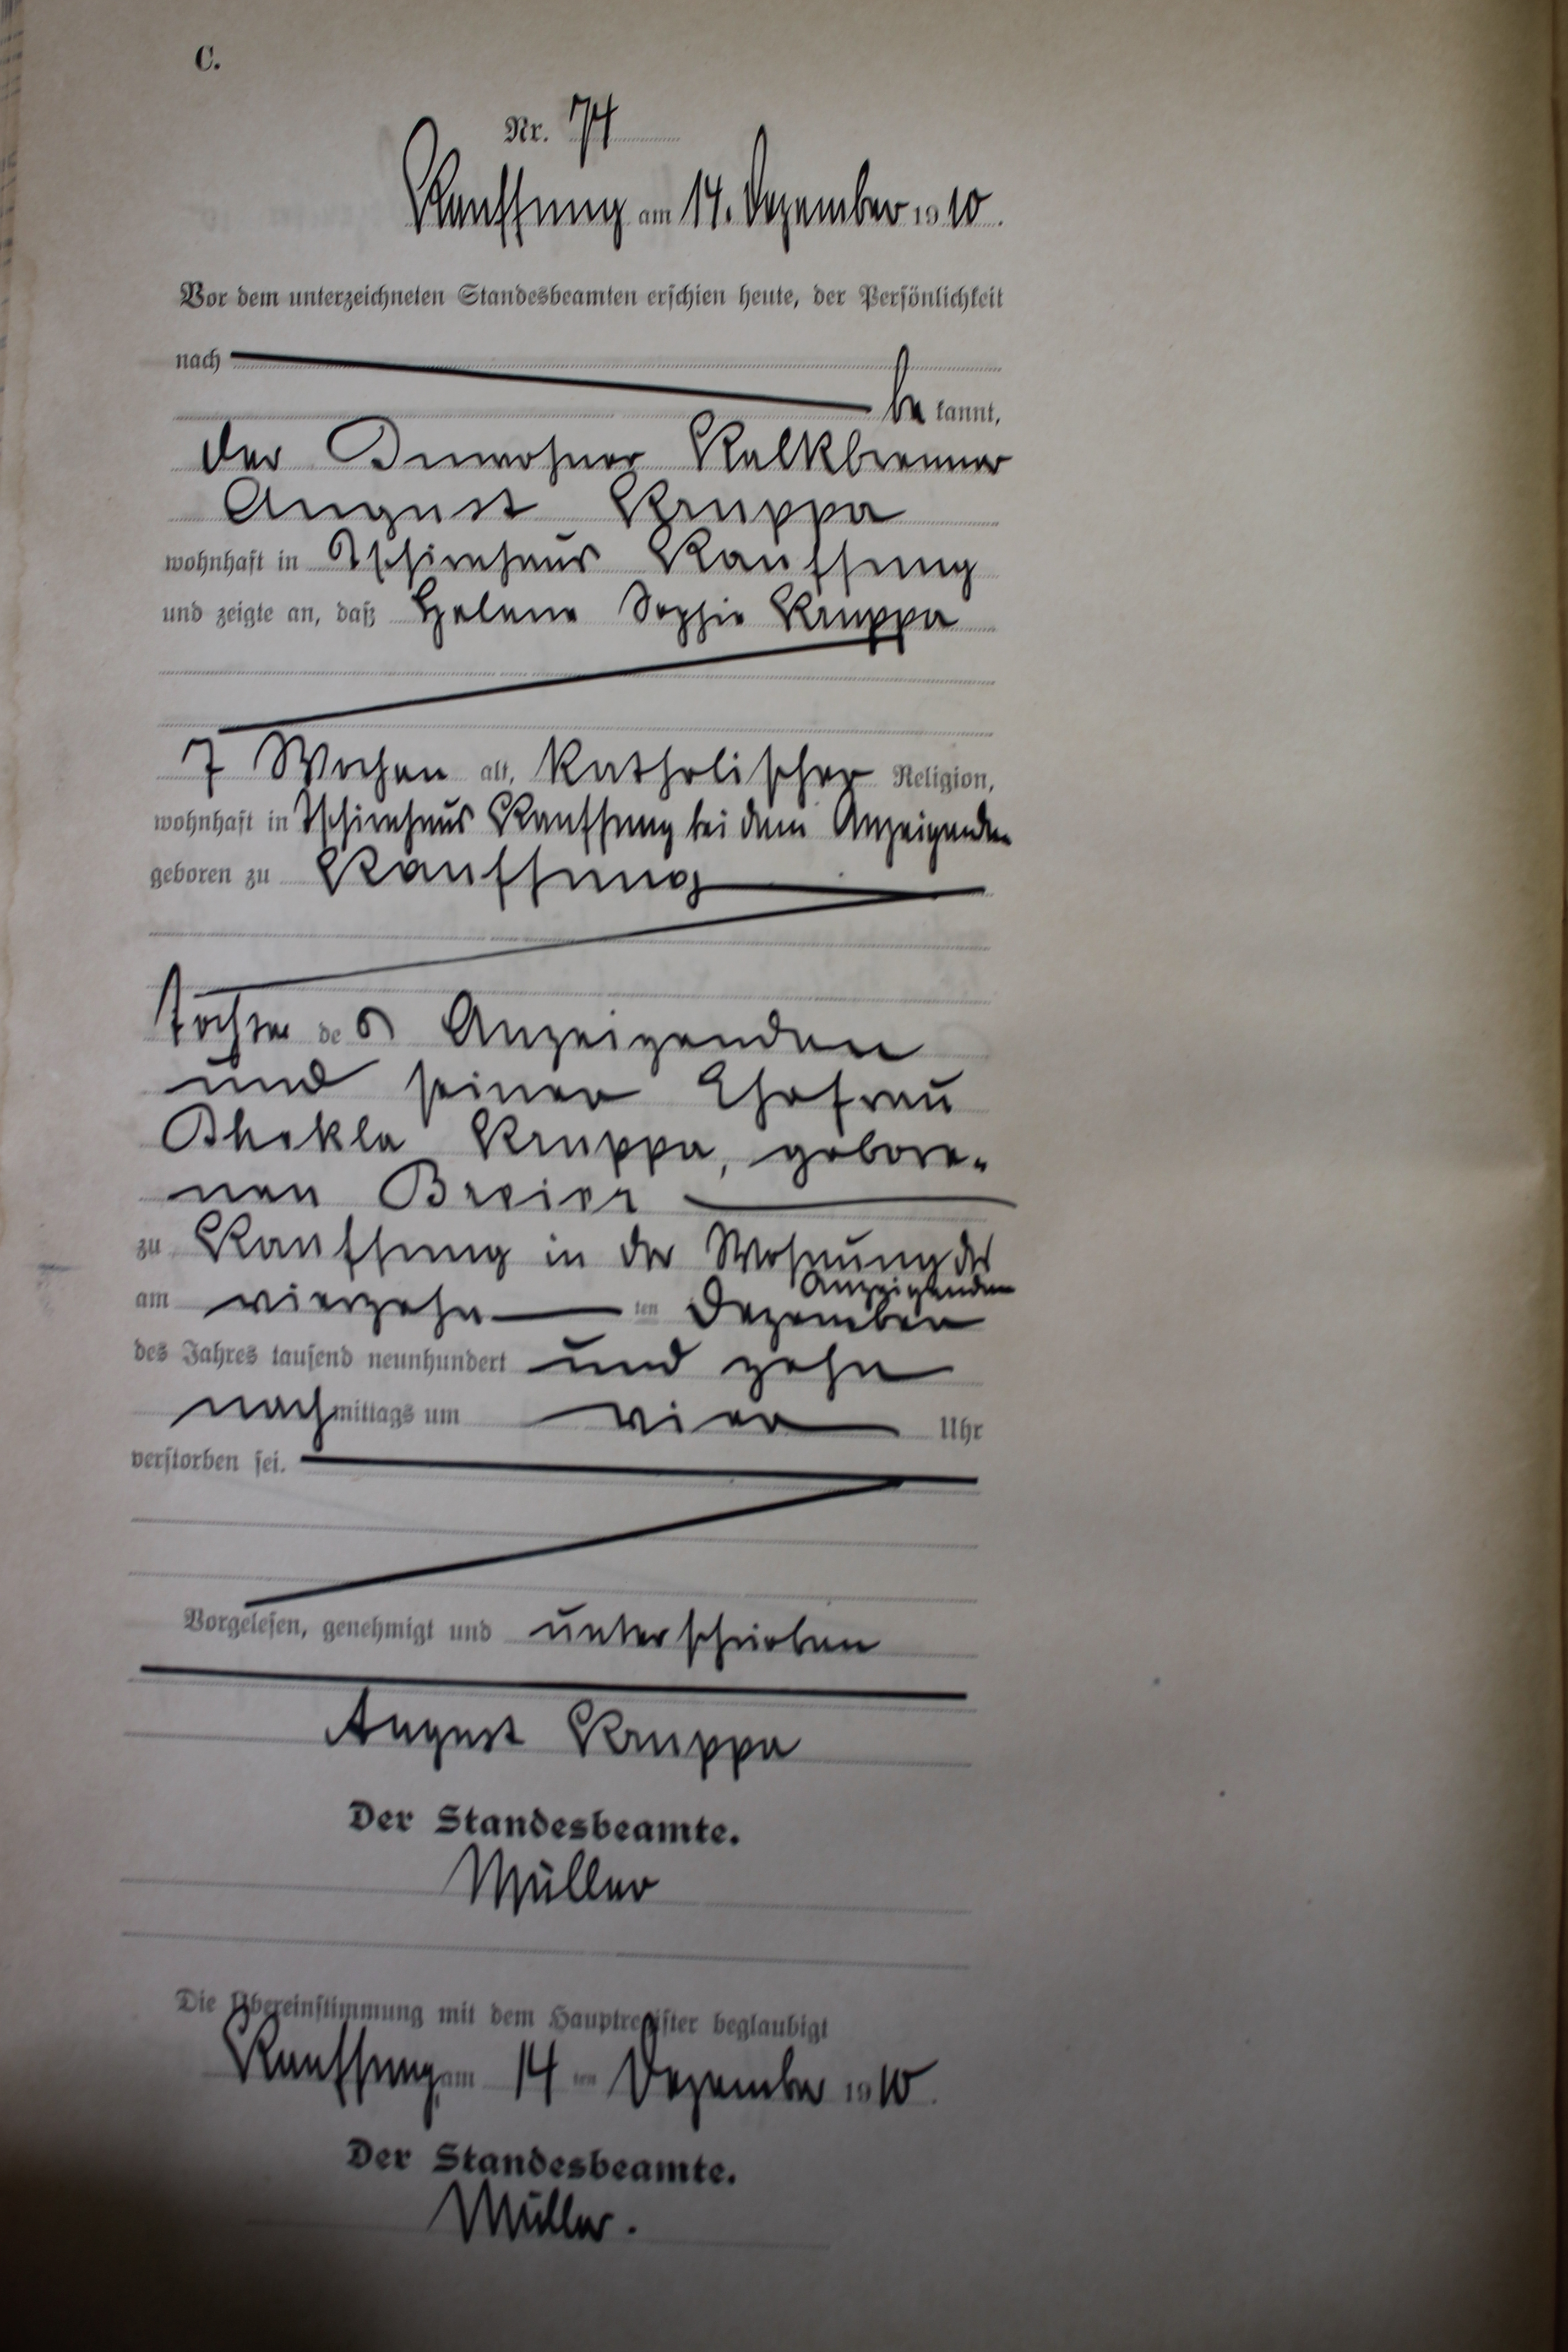 C.
Nr. 74
Kauffung am 14. Dezember 1910.
Vor dem unterzeichneten Standesbeamten erschien heute, der Persönlichkeit
nach
be kannt,
der Inwohner Kalkbrenner
August Kruppa
wohnhaft in Tschirnhaus Kauffung
und zeigte an, daß Helene Sophie Kruppa
7 Wochen alt, katholischer Religion,
wohnhaft in Tschirnhaus Kauffung bei dem Anzeigenden
geboren zu Kauffung
Tochter des Anzeigenden
und seiner Ehefrau
Thekla Kruppa, gebore-
nen Breier
zu Kauffung in der Wohnung des
Anzeigenden
am vierzehn ten Dezember
des Jahres tausend neunhundert und zehn
nachmittags um vier Uhr
verstorben sei.
Vorgelesen, genehmigt und unterschrieben
August Kruppa
Der Standesbeamte.
Müller
Die Übereinstimmung mit dem Hauptregister beglaubigt
Kauffung, am 14 ten Dezember 1910.
Der Standesbeamte.
Müller.